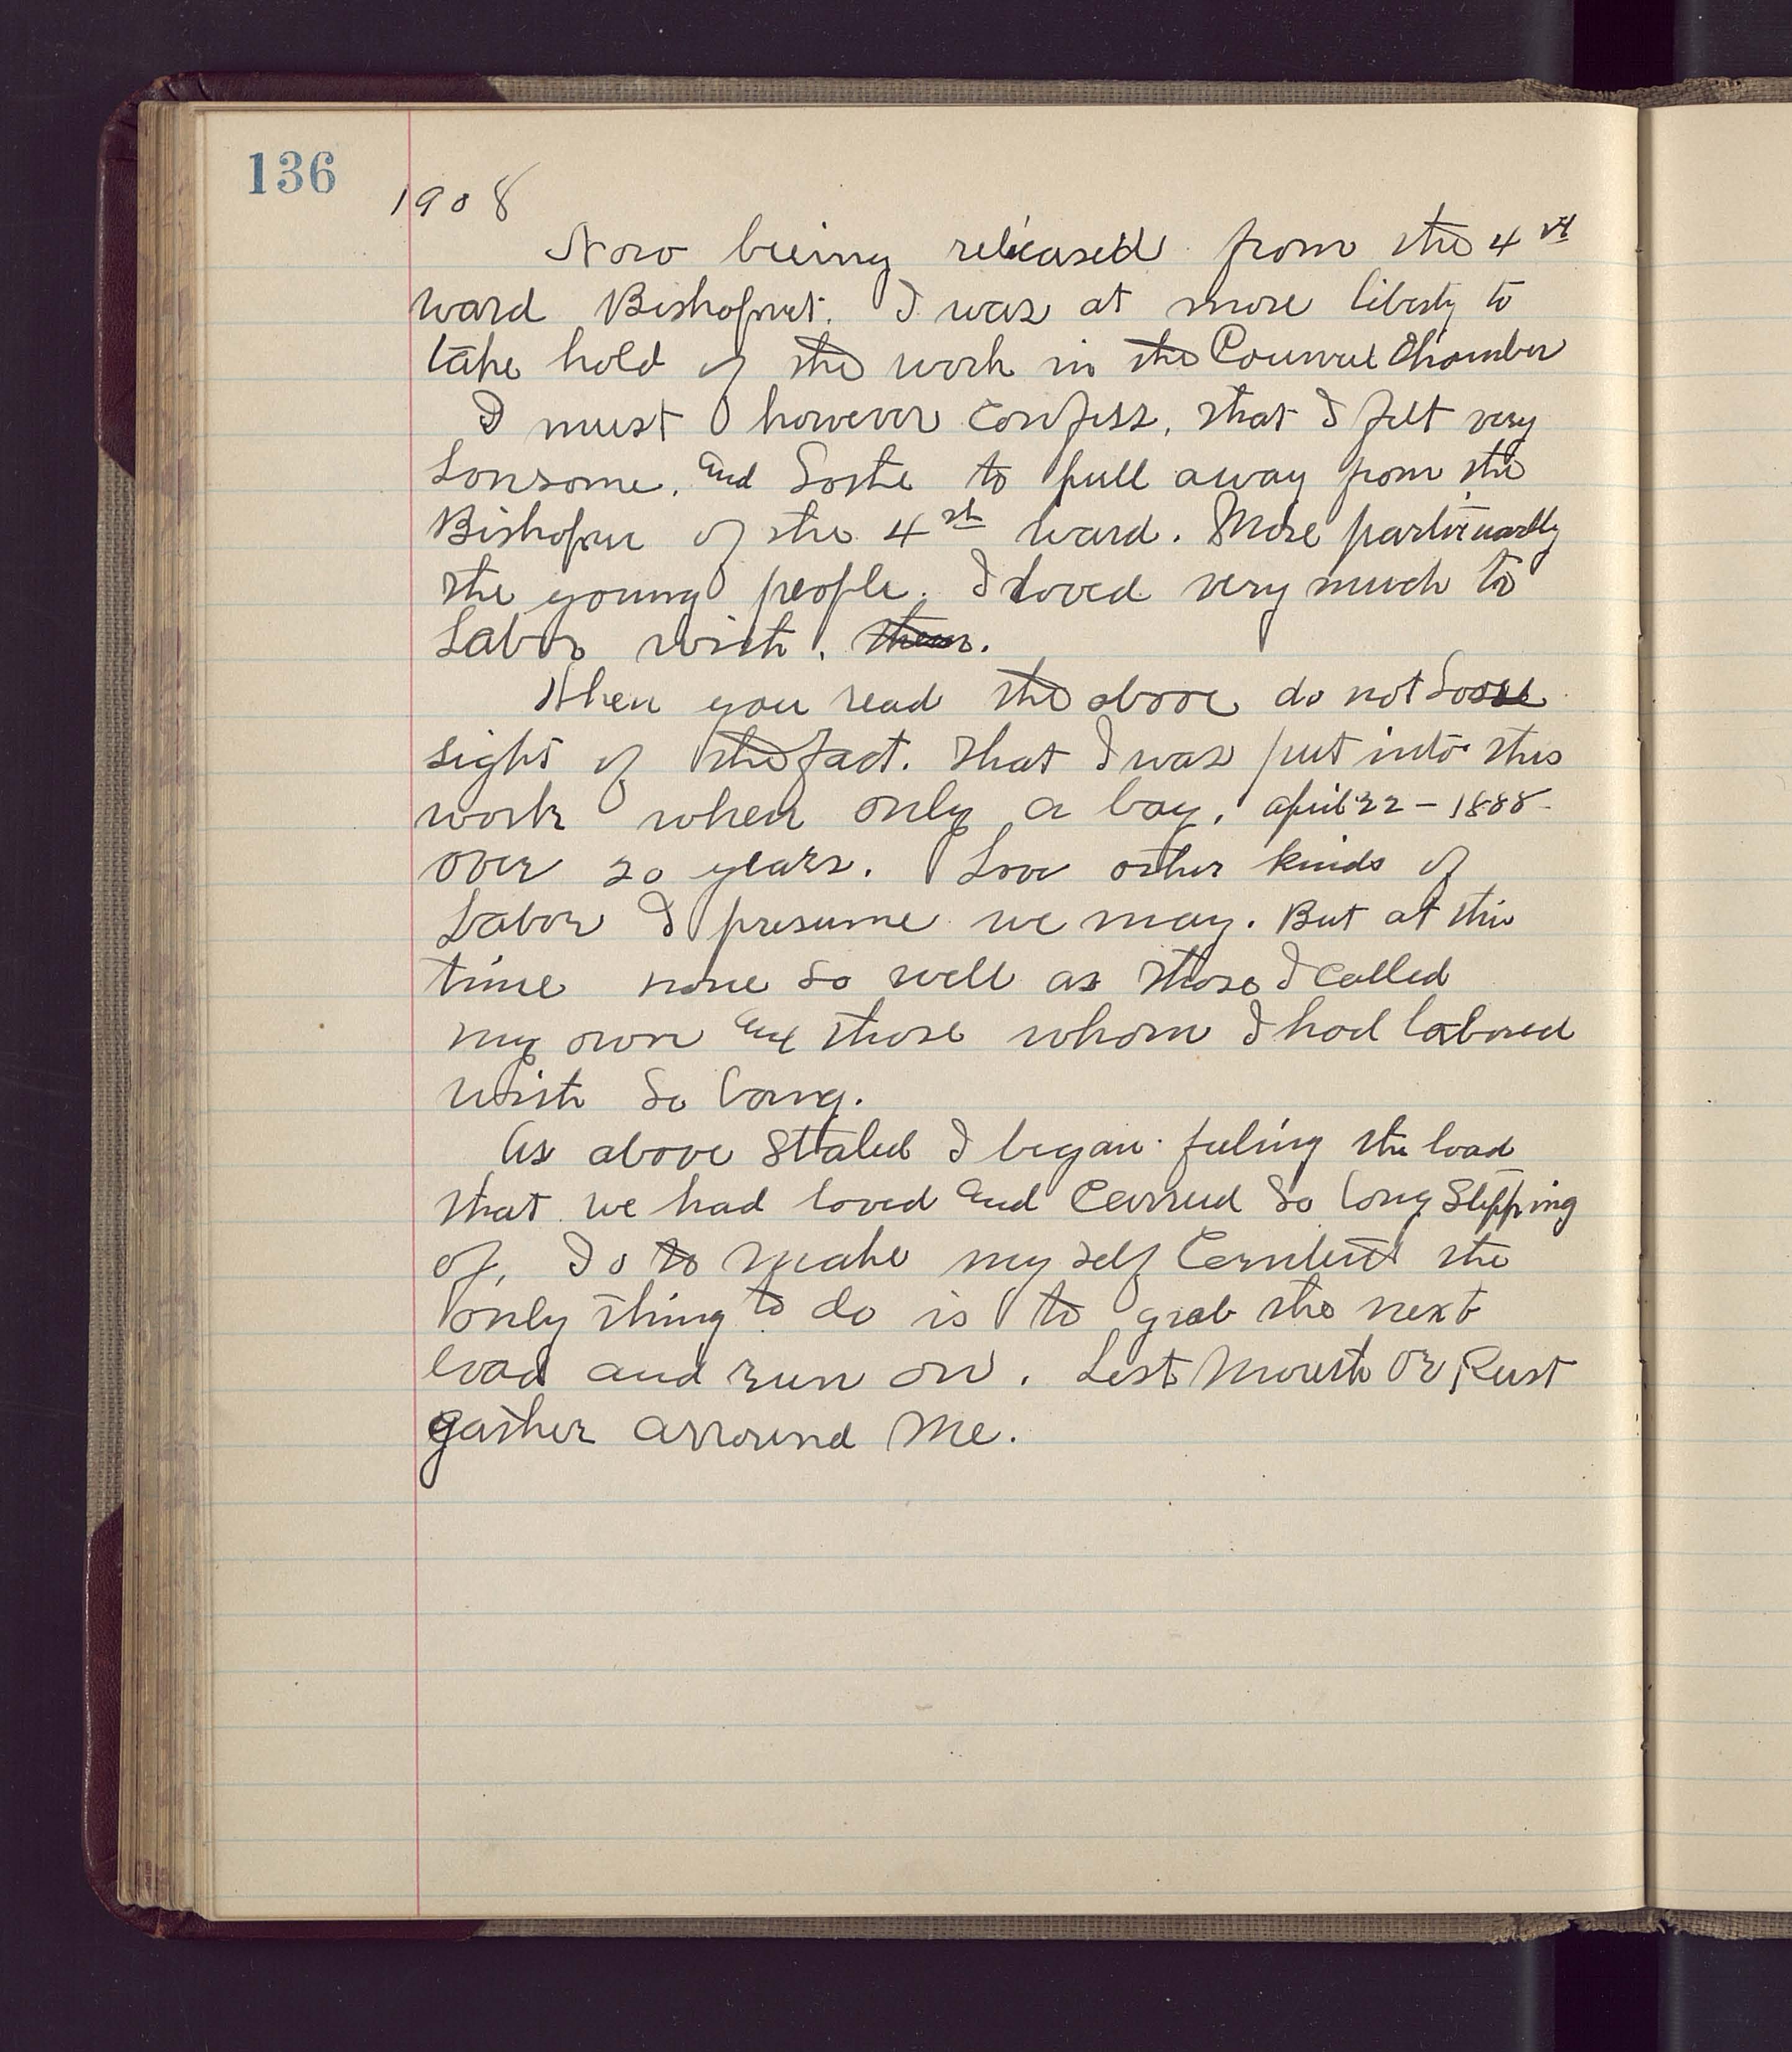 136
1908
Now beeing released from the 4th
ward Bishopric. I was at more liberty to
take hold of the work in the Council Chamber
I must however confess, that I felt very
Lonsome. and Lothe to pull away from the
Bishopric of the 4th ward. More particuarlly
the young people. I loved very much to
Labor with. them.
When you read the above do not Loose
sight of the fact. that I was put into this
work when only a boy. april 22 - 1888
over 20 years. Love other kinds of
Labor I presume we may. But at this
time none so well as those I called
my own and those whom I had labored
with So long.
As above Stated I began feeling the load
that we had loved and Carried So long Slipping
of, So to make my self Content the
only thing to do is to grab the next
load and run on. Lest Mouth or Rust
gather arround Me.